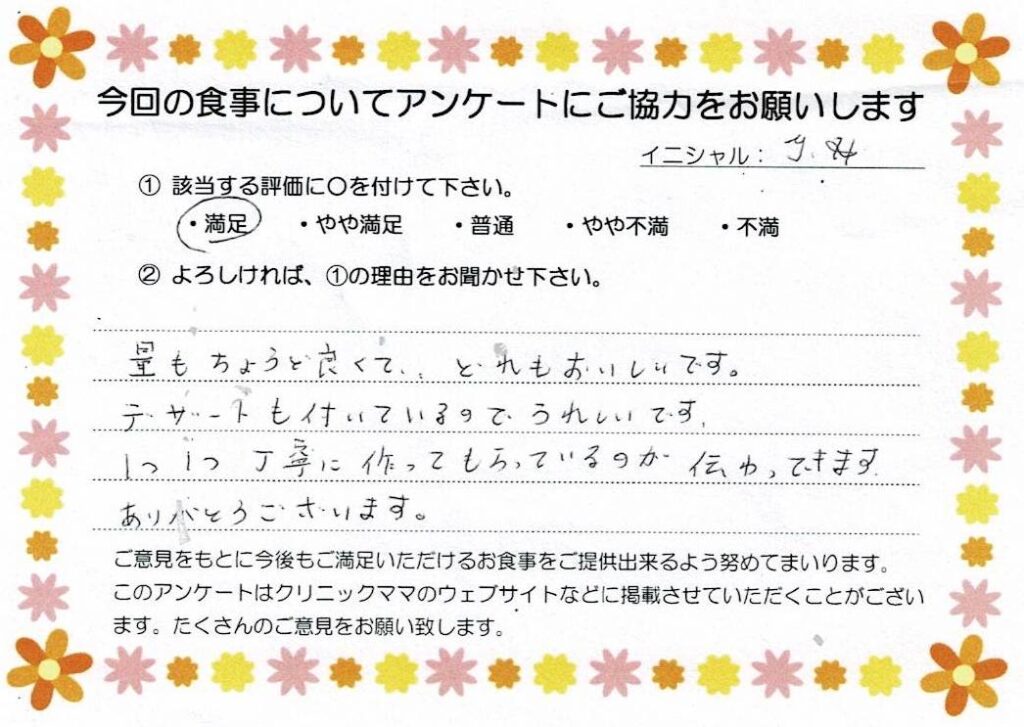 今回の食事についてアンケートにご協力をお願いします
イニシャル：
① 該当する評価に〇を付けて下さい。
・満足 ・やや満足 ・普通 ・やや不満 ・不満
② よろしければ、①の理由をお聞かせ下さい。
量もちょうど良くて、どれもおいしいです。
デザートも付いているのでうれしいです。
1つ1つ丁寧に作ってもらっているのが伝わってきます
ありがとうございます。
ご意見をもとに今後もご満足いただけるお食事をご提供出来るよう努めてまいります。
このアンケートはクリニックママのウェブサイトなどに掲載させていただくことがござい
ます。たくさんのご意見をお願い致します。